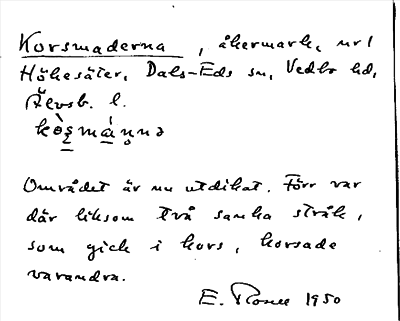 Korsmaderna, åkermark, nr 1
Hökesäter, Dals-Eds sn, Vedbo hd,
Älvsb. l.
Området är nu utdikat. Förr var
där liksom två sanka stråk,
som gick i kors, korsade
varandra.
E. 1950